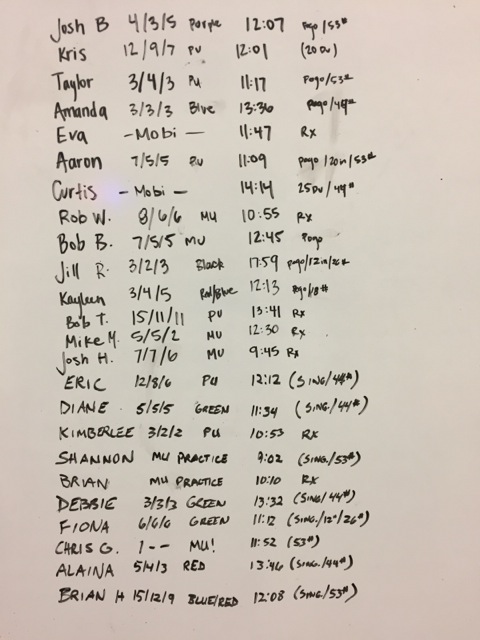 Josh B 4/3/5 Purple 12:07 Pogo/53#
Kris 12/9/7 PU 12:01 (20 DU)
Taylor 3/4/3 PU 11:17 Pogo/53#
Amanda 3/3/3 Blue 13:36 Pogo/44#
Eva -Mobi- 11:47 Rx
Aaron 7/5/5 PU 11:09 pogo/20in/53#
Curtis -Mobi- 14:14 25DU/44#
Rob W. 8/6/6 MU 10:55 Rx
Bob B. 7/5/5 MU 12:45 Pogo
Jill R. 3/2/3 Black 17:59 pogo/12in/26#
Kayleen 3/4/5 Red/Blue 12:13 Pogo/18#
Bob T. 15/11/11 PU 13:41 Rx
Mike M. 5/5/2 MU 12:30 Rx
Josh H. 7/7/6 MU 9:45 Rx
ERIC 12/8/6 PU 12:12 (SING./44#)
DIANE 5/5/5 GREEN 11:34 (SING./44#)
KIMBERLEE 3/2/2 PU 10:53 RX
SHANNON MU PRACTICE 9:02 (SING./53#)
BRIAN MU PRACTICE 10:10 RX
DEBBIE 3/3/3 GREEN 13:32 (SING/44#)
FIONA 6/6/6 GREEN 11:12 (SING./12"/26#)
CHRIS G. 1-- MU! 11:52 (53#)
ALAINA 5/4/3 RED 13:46 (SING./44#)
BRIAN H 15/12/9 BLUE/RED 12:08 (SING/53#)